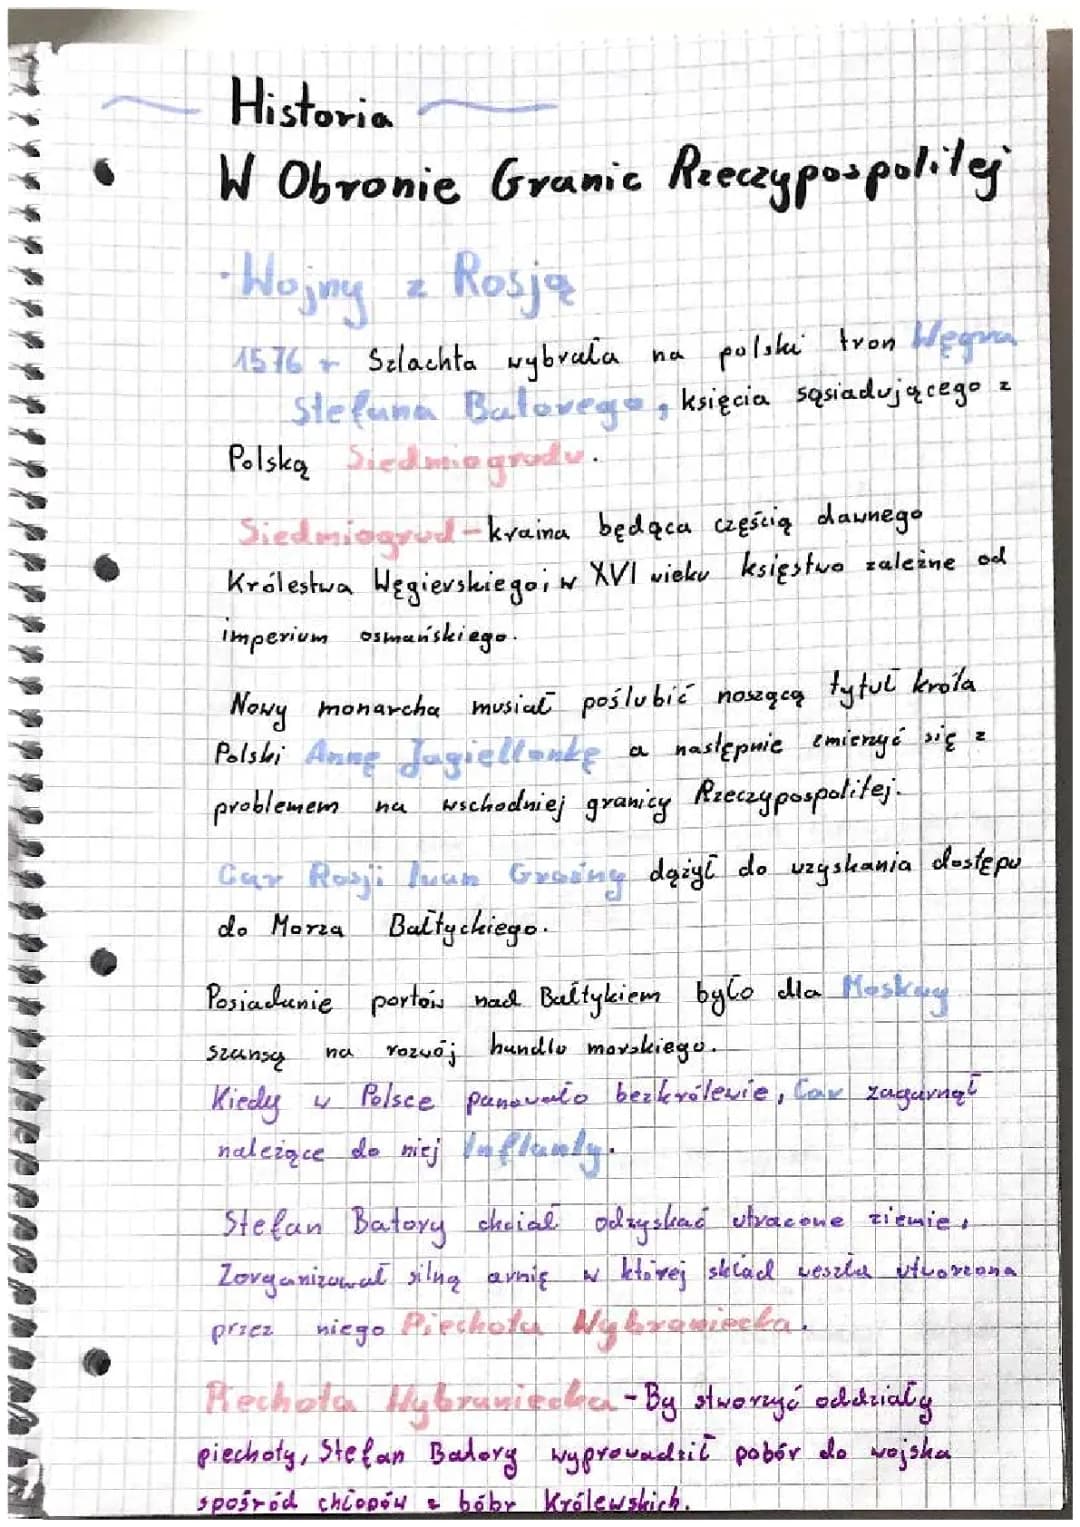 Historia
W Obronie Granic Rzeczypospolitej
• Wojny z Rosją
1576 r Szlachta wybrała na polski tron Węgra
Stefana Batorego, księcia sąsiadującego z
Polską Siedmiogrodu.
Siedmiogrod - kraina będąca częścią dawnego
Królestwa Węgierskiego; w XVI wieku księstwo zależne od
imperium osmańskiego.
Nowy monarcha musiał poślubić noszącą tytuł króla
Polski Annę Jagiellonkę a następnie zmierzyć się z
problemem na wschodniej granicy Rzeczypospolitej.
Car Rosji Iwan Groźny dążył do uzyskania dostępu
do Morza Bałtyckiego.
Posiadanie portów nad Bałtykiem było dla Moskwy
szansą na rozwój handlu morskiego.
Kiedy w Polsce panowało bezkrólewie, Car zagarnął
należące do niej Inflanty.
Stefan Batory chciał odzyskać utracone ziemie.
Zorganizował silną armię w której skład weszła utworzona
przez niego Piechota Wybraniecka.
Piechota Wybraniecka - By stworzyć oddziały
piechoty, Stefan Batory wyprowadził pobór do wojska
spośród chłopów z bóbr Królewskich.